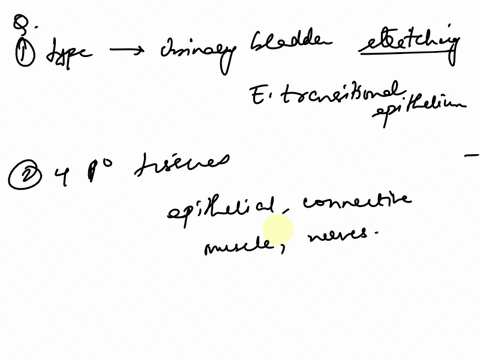 Q.
① type → Urinary bladder stretching
E. transitional
epithelium
② 4 1° tissues
epithelial, connective
muscle, nerves.